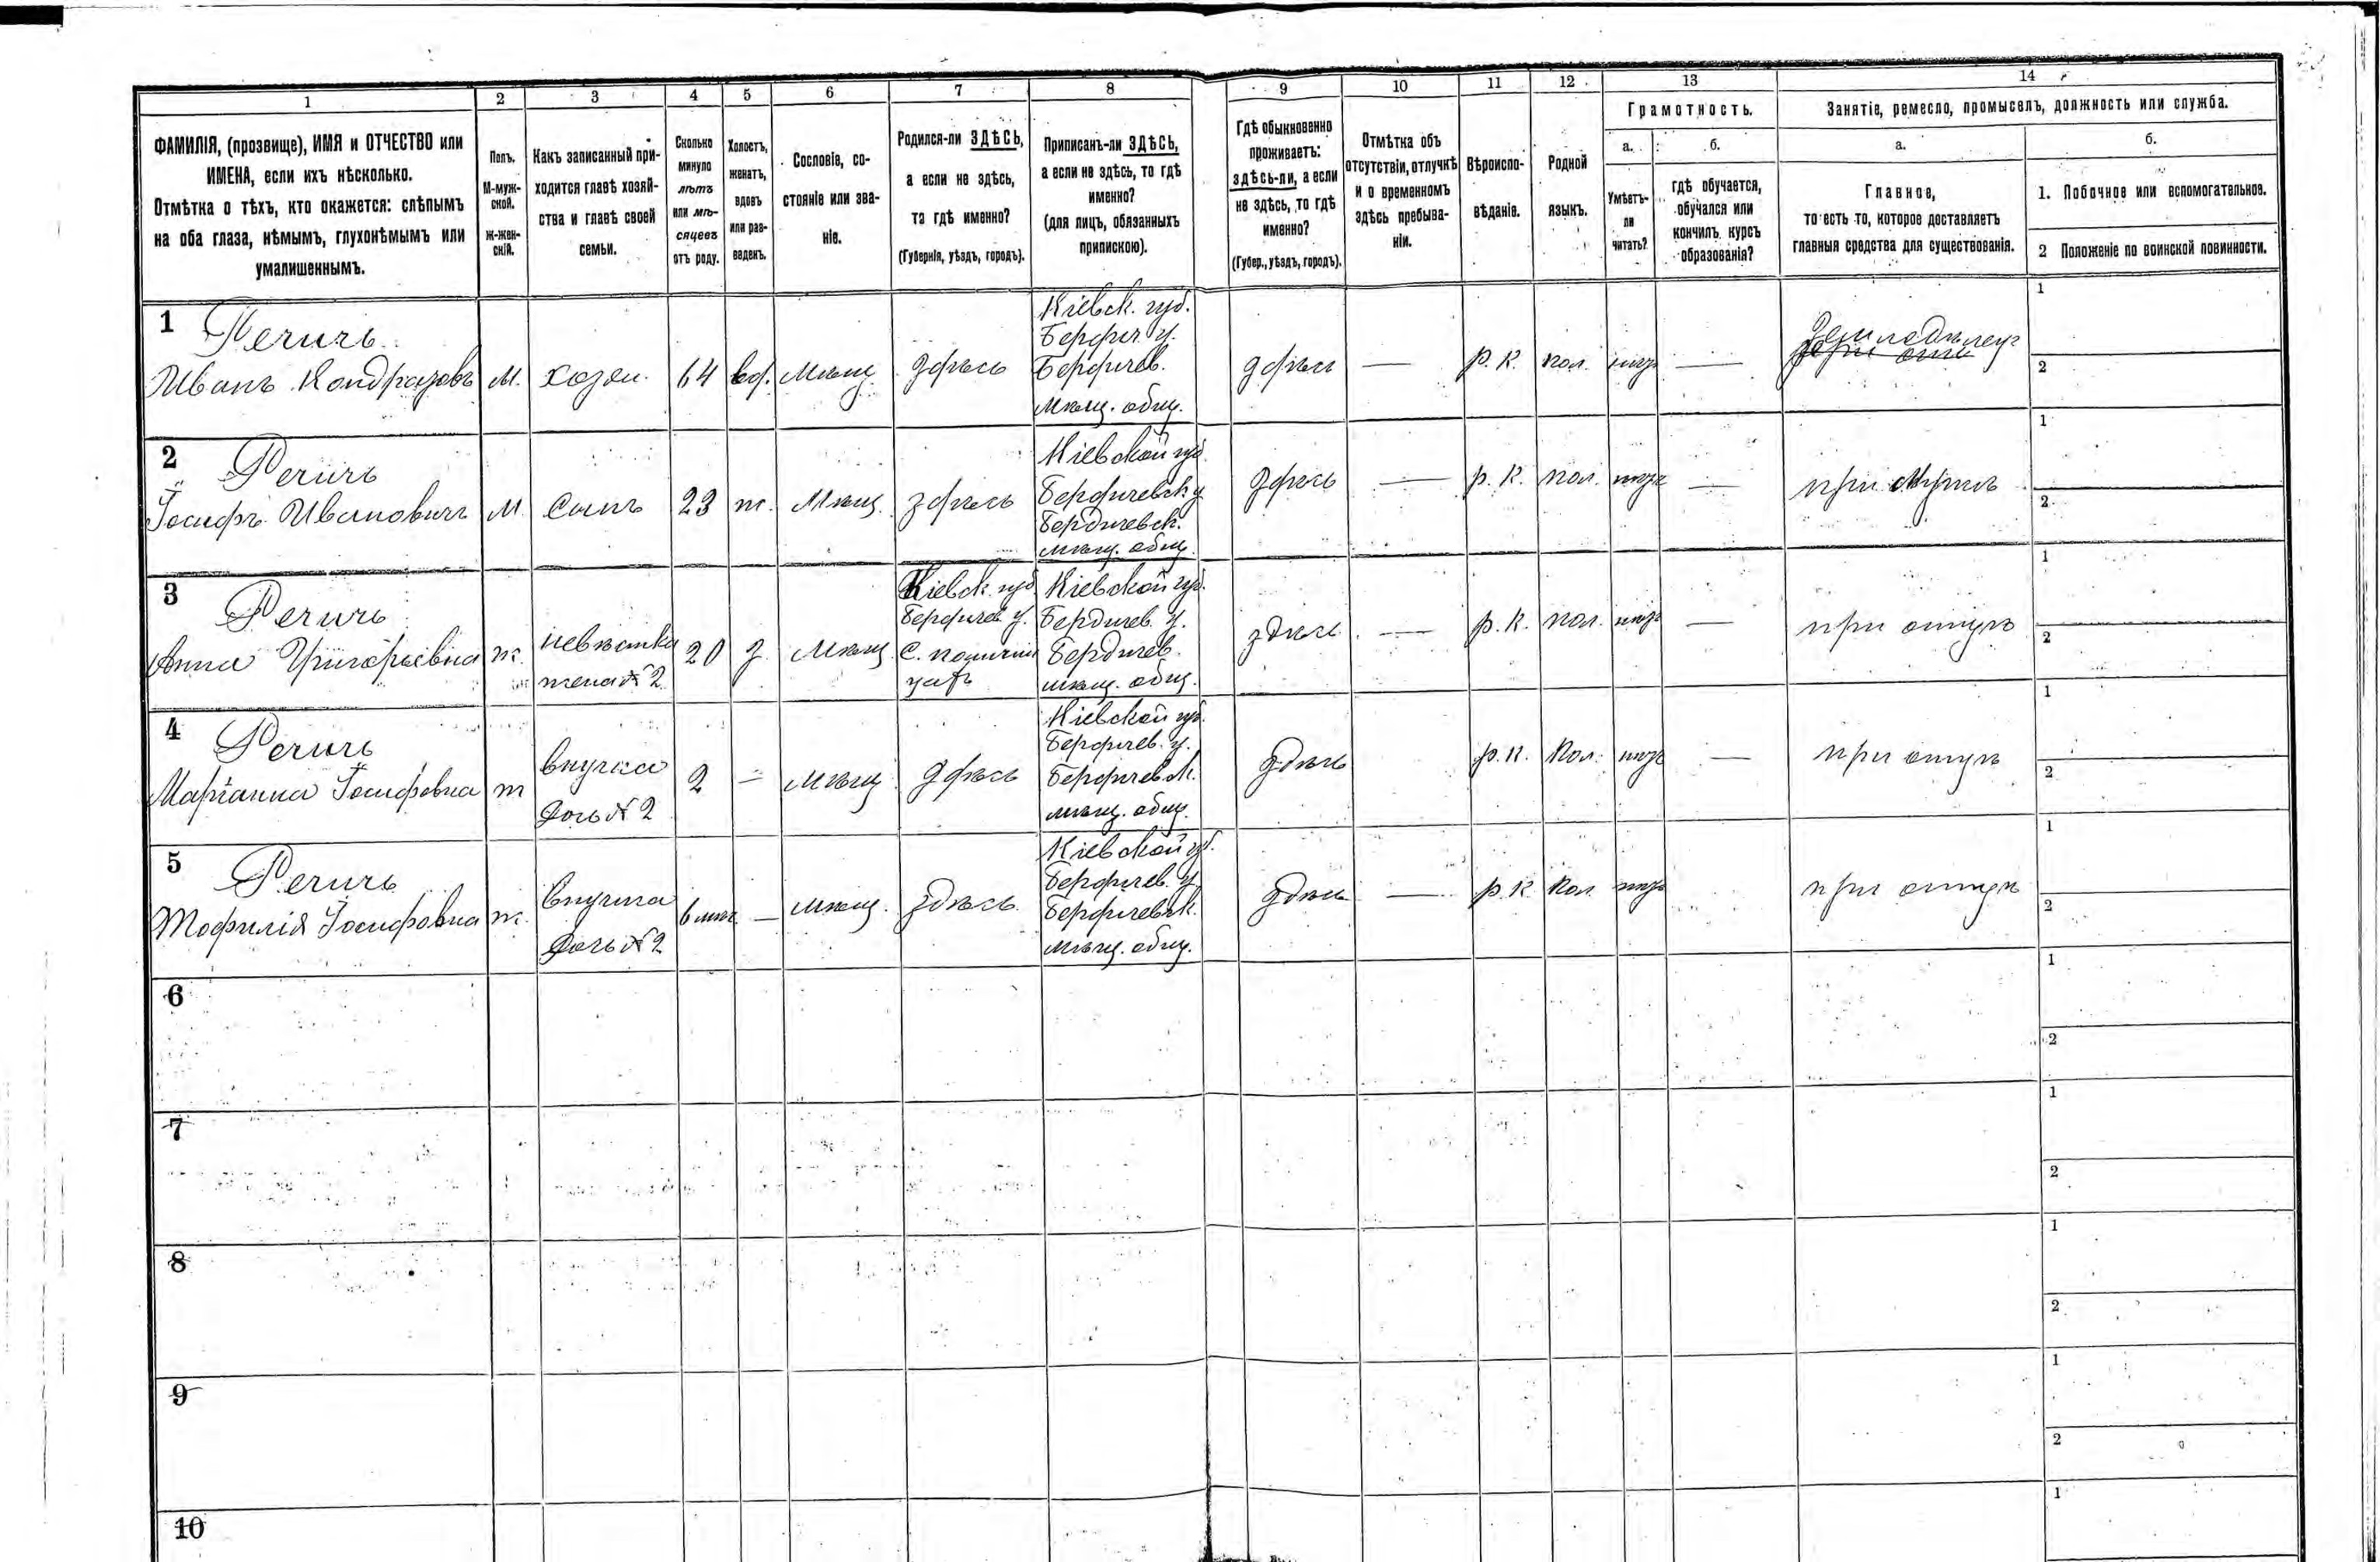 1 2 3 4 5 6 7 8 9 10 11 12 13 14
ФАМИЛІЯ, (прозвище), ИМЯ и ОТЧЕСТВО или
ИМЕНА, если ихъ нѣсколько.
Отмѣтка о тѣхъ, кто окажется: слѣпымъ
на оба глаза, нѣмымъ, глухонѣмымъ или
умалишеннымъ.
Полъ.
М-муж-
ской.
ж-жен-
скій.
Какъ записанный при-
ходится главѣ хозяй-
ства и главѣ своей
семьи.
Сколько
минуло
лѣтъ
или мѣ-
сяцевъ
отъ роду.
Холостъ,
женатъ,
вдовъ
или раз-
веденъ.
Сословіе, со-
стояніе или зва-
ніе.
Родился-ли ЗДѢСЬ,
а если не здѣсь,
то гдѣ именно?
(Губернія, уѣздъ, городъ).
Приписанъ-ли ЗДѢСЬ,
а если не здѣсь, то гдѣ
именно?
(для лицъ, обязанныхъ
припискою).
Гдѣ обыкновенно
проживаетъ:
здѣсь-ли, а если
не здѣсь, то гдѣ
именно?
(Губер., уѣздъ, городъ).
Отмѣтка объ
отсутствіи, отлучкѣ
и о временномъ
здѣсь пребыва-
ніи.
Вѣроиспо-
вѣданіе.
Родной
языкъ.
Грамотность.
а.
Умѣетъ-
ли
читать?
б.
гдѣ обучается,
обучался или
кончилъ курсъ
образованія?
Занятіе, ремесло, промыселъ, должность или служба.
а.
Главное,
то есть то, которое доставляетъ
главныя средства для существованія.
б.
1. Побочное или вспомогательное.
2 Положеніе по воинской повинности.
1
Речичъ
Иванъ Кондратовъ
М.
хозяи.
64
вд.
Мѣщ
здѣсь
Кіевск. губ.
Бердич. у.
Бердичев.
мѣщ. общ.
здѣсь
—
р. К.
пол.
—
Земледѣлец
1
2
2
Речичъ
Іосифъ Ивановичъ
М
сынъ
23
ж.
Мѣщ.
здѣсь
Кіевской губ.
Бердичевск у
Бердичевск.
мѣщ. общ.
здѣсь
—
р. К.
пол.
—
при
1
2
3
Речичъ
Анна Григорьевна
ж.
невѣстка
жена № 2
20
з.
мѣщ
Кіевск. губ
Бердичев у.
с.
Кіевской губ.
Бердичев. у.
Бердичев.
мѣщ. общ.
здѣсь
—
р. К.
пол.
—
при отцѣ
1
2
4
Речичъ
Маріанна Іосифовна
ж
внучка
дочь № 2
2
—
мѣщ
здѣсь
Кіевской губ.
Бердичев. у.
Бердичевск.
мѣщ. общ.
здѣсь
р. К.
пол.
—
при отцѣ
1
2
5
Речичъ
Теофилія Іосифовна
ж.
внучка
дочь № 2
6 мѣс.
—
мѣщ.
здѣсь
Кіевской губ.
Бердичев. у
Бердичевск.
мѣщ. общ.
здѣсь
—
р. К.
пол
при отцѣ
1
2
6
1
2
7
1
2
8
1
2
9
1
2
10
1